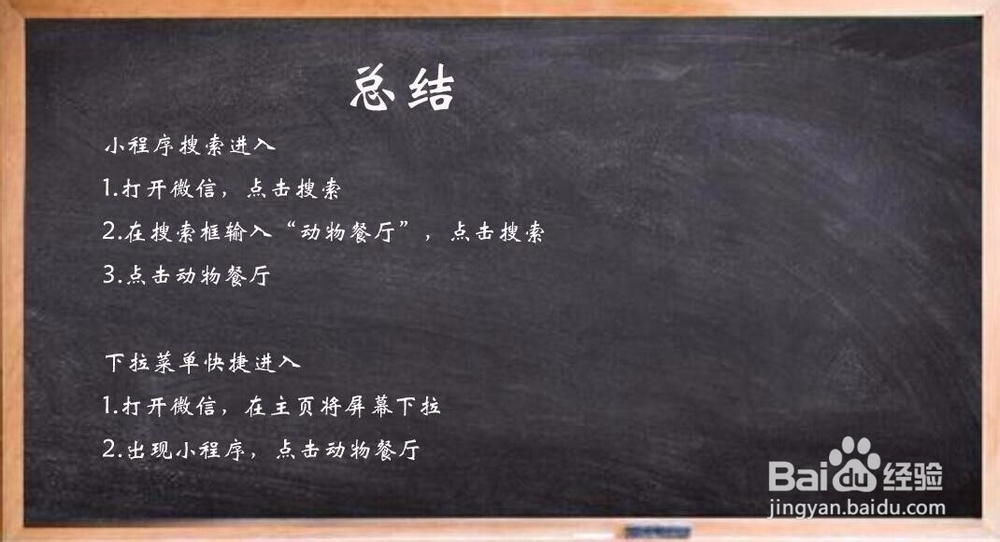 总结
小程序搜索进入
1.打开微信，点击搜索
2.在搜索框输入“动物餐厅”，点击搜索
3.点击动物餐厅
下拉菜单快捷进入
1.打开微信，在主页将屏幕下拉
2.出现小程序，点击动物餐厅
Bai du 经验
jingyan.baidu.com